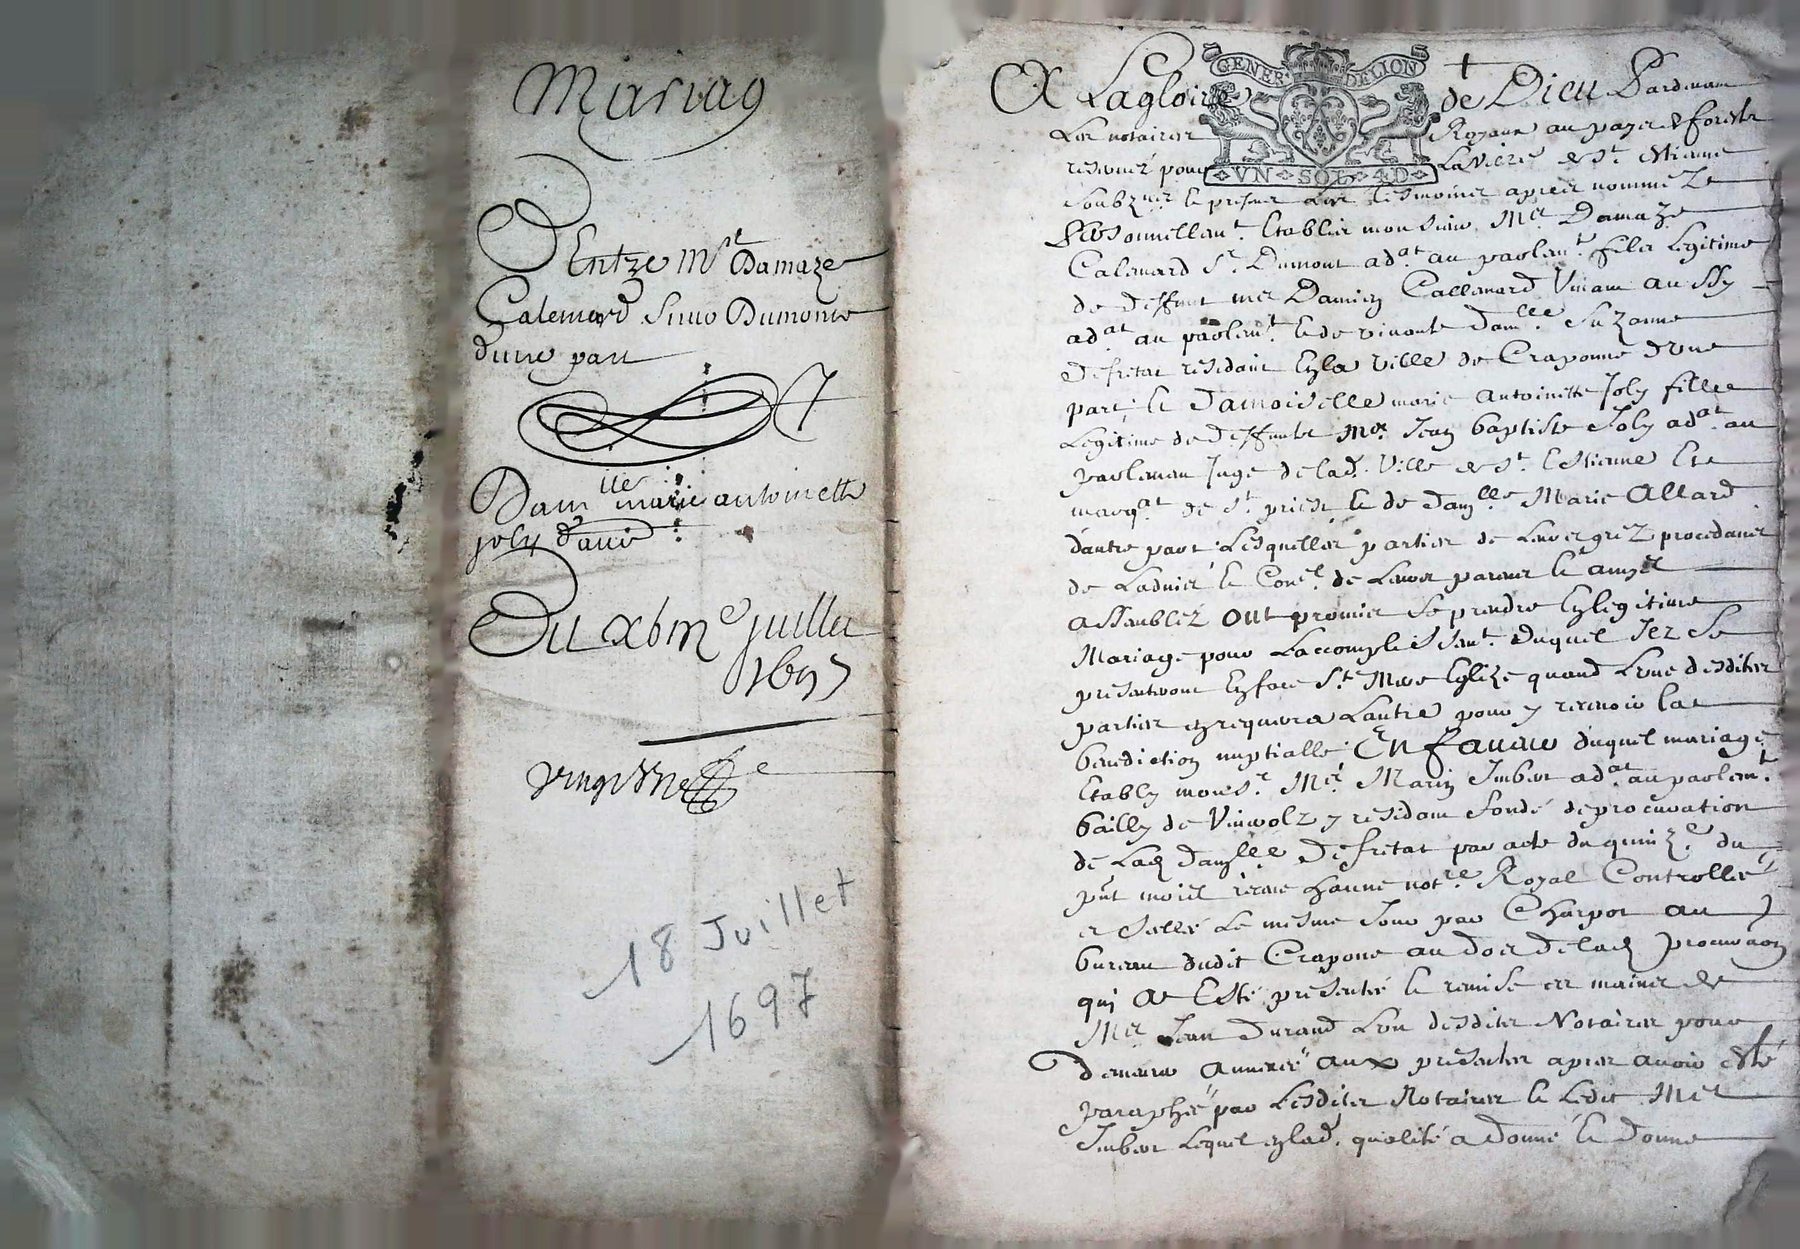 Mariag
Entre Mr Damaze
Calemard Sieur Dumont
d'une part
Damlle marie antoinette
joly d'autre
Du xbme juillet
1697
18 Juillet
1697
GENER DELION
VN SOL 4D
A Lagloire de Dieu Pardevant
Les notaires Royaux au payes de forests
reservé pour La Ville de St Estienne
soubznes le presmier Les tesmoins apres nommez
Personnellemt Establis monsieur Mer Damaze
Calemard Sr Dumont adat au parlemt fils Legitime
de deffunt mer Damien Callemard Vivant aussy
adat au parlemt et de vivante damlle Suzanne
Defretat residant en la ville de Craponne d'une
part, et Damoiselle marie antoinette Joly fille
Legitime de deffunt Mer Jean baptiste Joly adat au
parlement Juge de lad. Ville de St Estienne et
marqat de St priest et de damlle Marie Allard
d'autre part Lesquelles parties de Leurs grez procedants
de Ladvis et Conel de Leurs parens et amys
assemblez ont promis se prendre en legitime
Mariage pour Laccomplissemt duquel Ilz se
presenteront en face Ste Mere Eglize quand Lune desdites
parties en requerra Lautre pour y recevoir la
benediction nuptialle En faveur duquel mariage
Estably monsr Mer Marin Imbert adat au parlemt
bailly de Viverolz y residant fondé de procuration
de Lad damlle Defretat par acte du quinze du
pnt mois receue hanne notre Royal Controllée
et sellée Le mesme Jour par Charpot au
bureau dudit Crapone au dos de lad procuraon
qui a Esté presentée et remise es mains de
Mer Jean Durand Lun desdites Notaires pour
demeurer annexée aux presentes apres avoir esté
paraphée par Lesdites Notaires et Ledit Mer
Imbert Lequel en lad. qualité a donné et donne